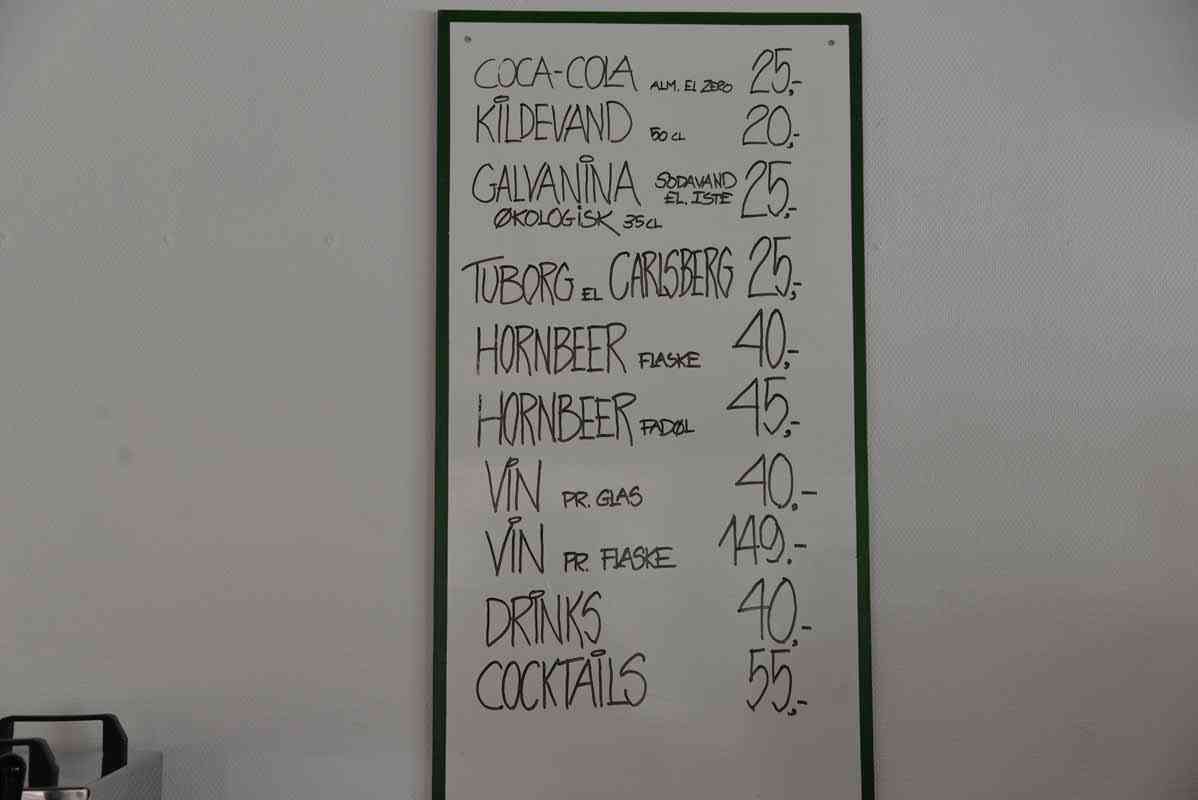 COCA-COLA ALM. EL ZERO 25,-
KILDEVAND 50 CL 20,-
GALVANINA SODAVAND EL. ISTE 25,-
ØKOLOGISK 35 CL
TUBORG EL CARLSBERG 25,-
HORNBEER FLASKE 40,-
HORNBEER FADØL 45,-
VIN PR. GLAS 40.-
VIN PR. FLASKE 149.-
DRINKS 40,-
COCKTAILS 55,-